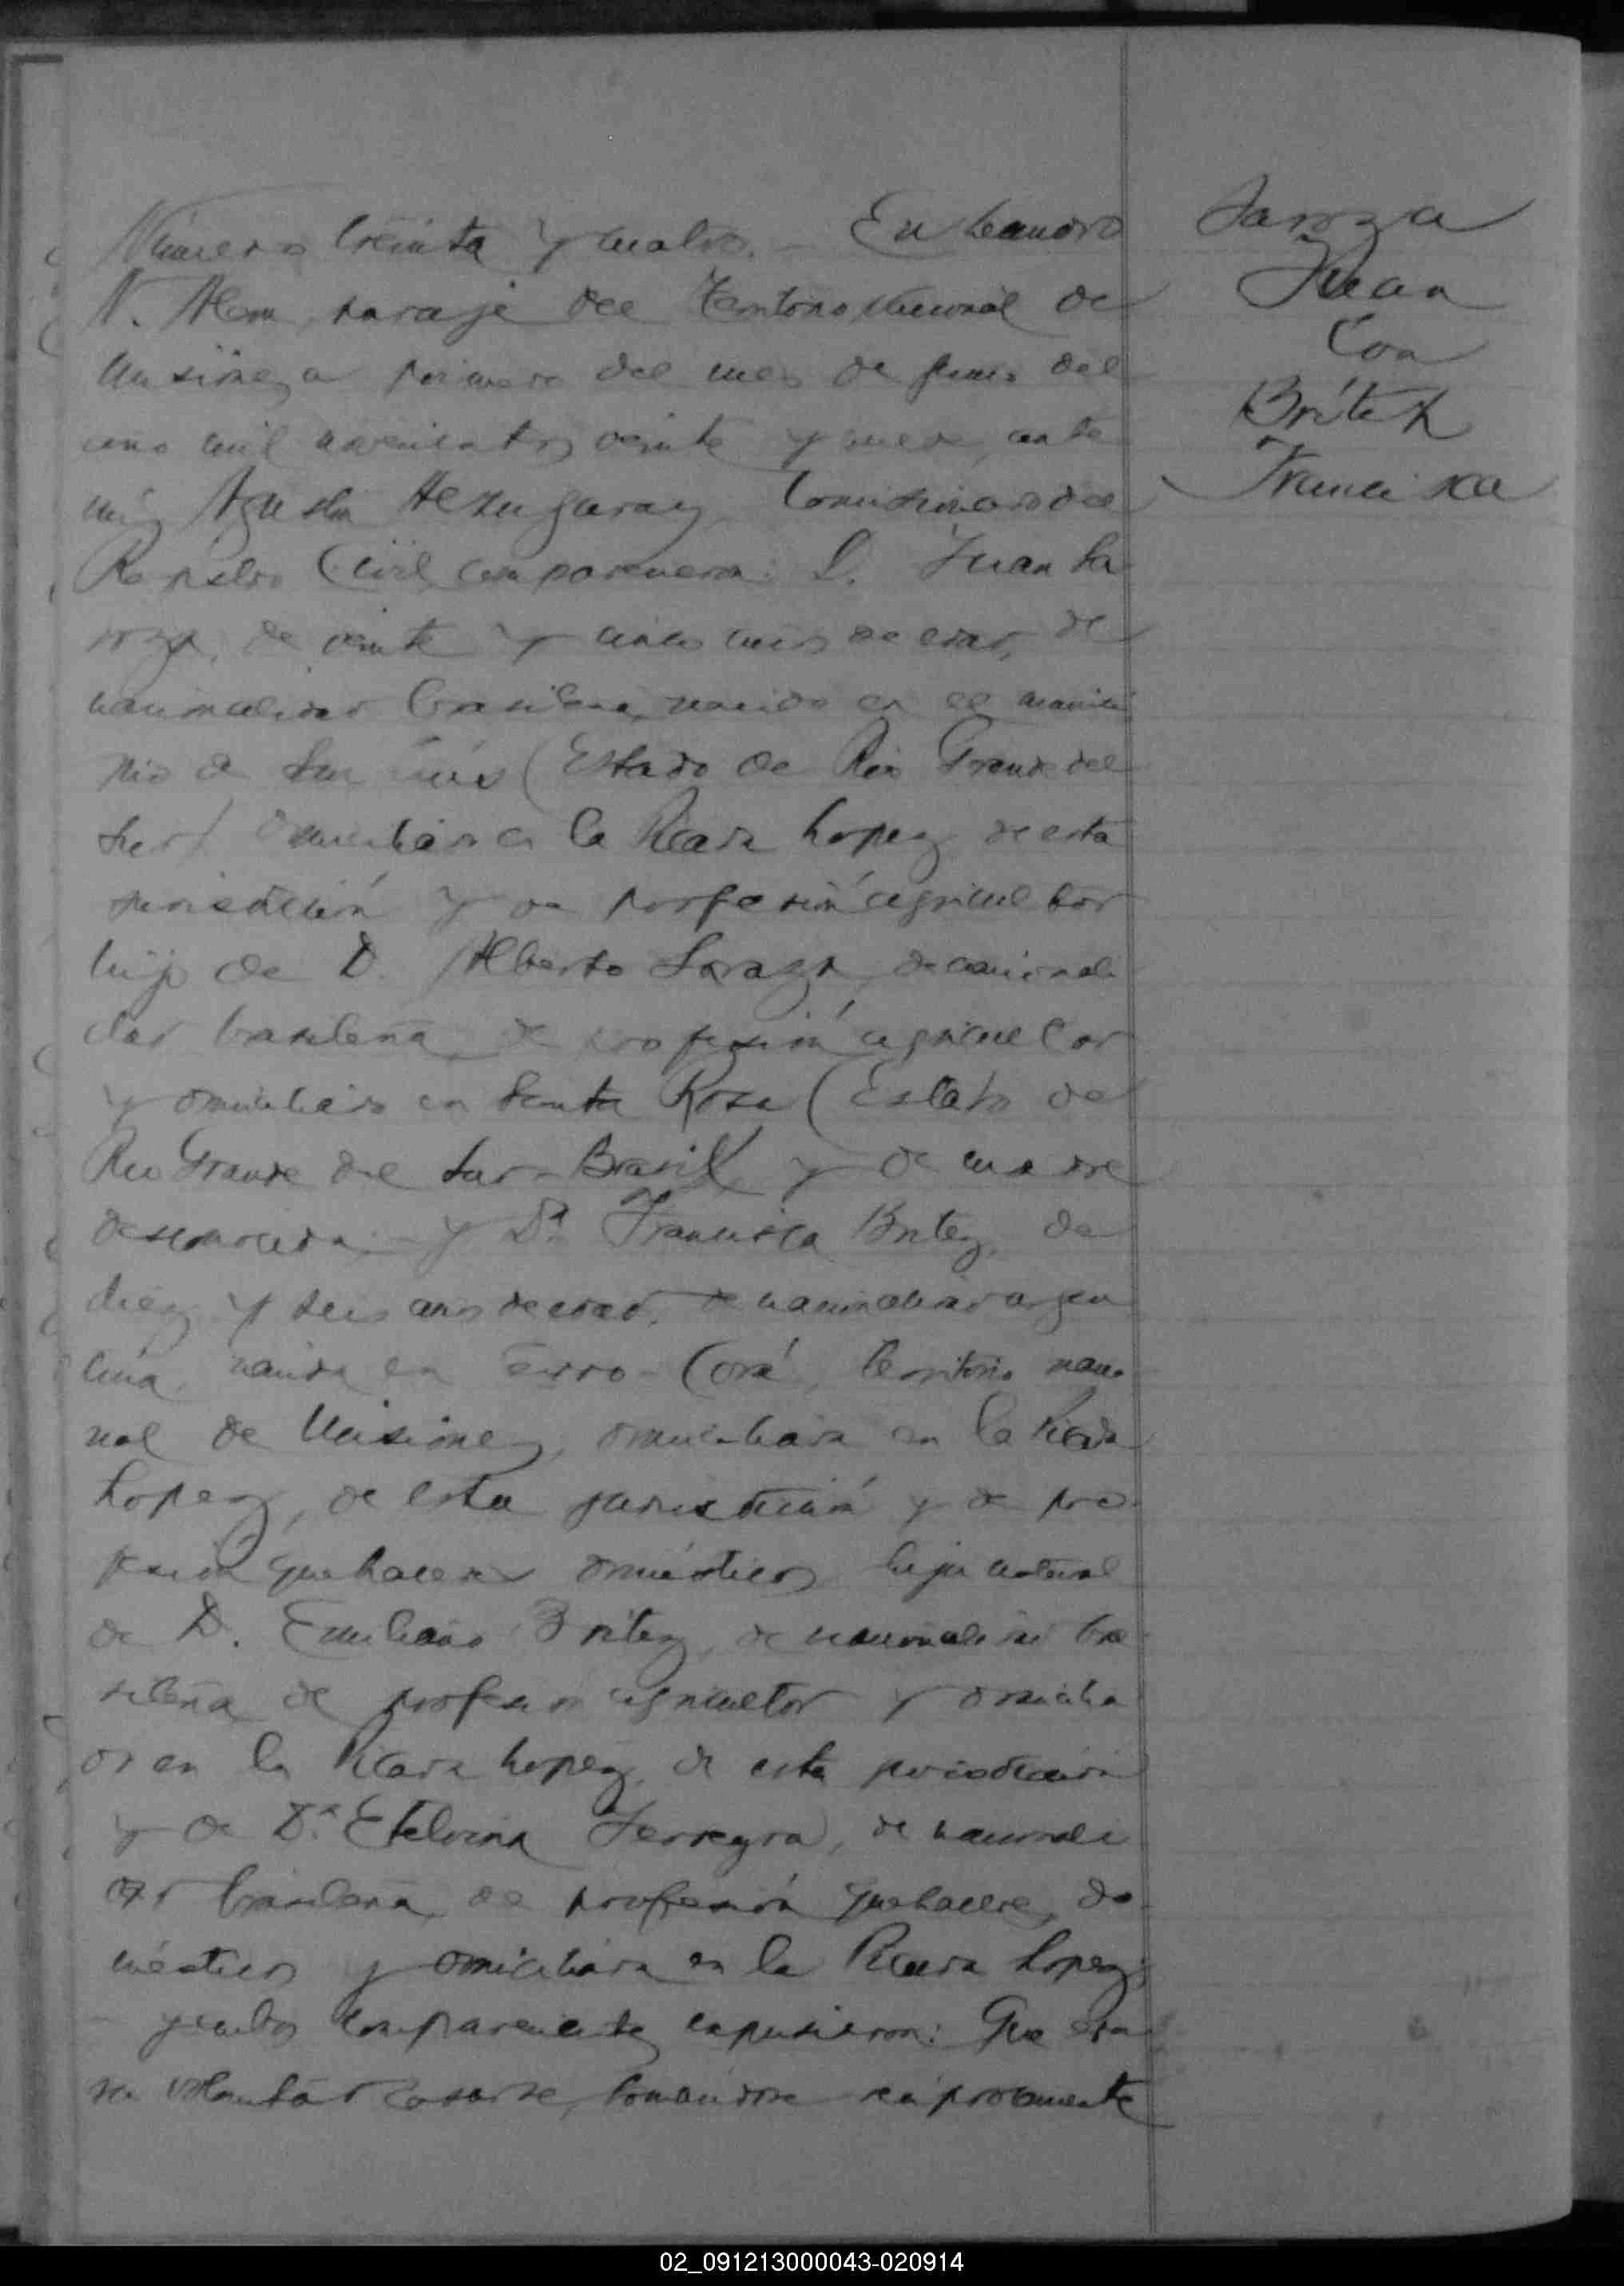 Número treinta y cuatro. - En Leandro
N. Alem, paraje del Territorio Nacional de
Misiones, a primero del mes de Junio del
año mil novecientos veinte y nueve, ante
mí, Agustin Comisionado del
Registro Civil, comparecieron: D. Juan Sa
roza, de veinte y cinco años de edad, de
nacionalidad brasileña, nacido en el munici
pio de San Luis (Estado de Rio Grande del
Sur) domiciliado en la Picada Lopez de esta
jurisdicción y de profesión agricultor
hijo de D. Alberto Saroza, de nacionali
dad brasileña, de profesión agricultor
y domiciliado en Santa Rosa (Estado de
Rio Grande del Sur - Brasil) y de madre
desconocida - y Dª Francisca Britez, de
diez y seis años de edad, de nacionalidad argen
tina, nacida en Cerro-Corá, Territorio nacio
nal de Misiones, domiciliada en la Picada
Lopez, de esta jurisdicción y de pro
fesión quehaceres domésticos, hija natural
de D. Emiliano Britez, de nacionalidad bra
sileña de profesion agricultor y domicilia
do en la Picada Lopez, de esta jurisdicción
y de Dª Etelvina Ferreyra, de nacionali
dad brasileña, de profesión quehaceres do
mésticos y domiciliada en la Picada Lopez;
y ambos comparecientes expusieron: Que era
su voluntad casarse, tomándose reciprocamente
Saroza
Juan
Con
Britez
Francisca
02_091213000043-020914